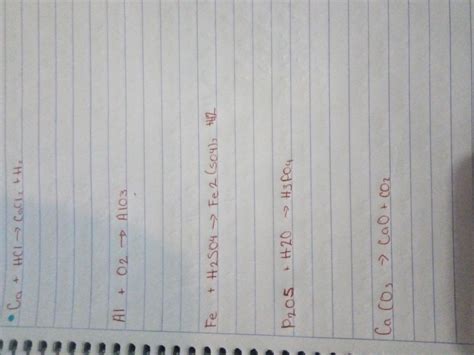 • Ca + HCl → CaCl2 + H2
Al + O2 → AlO3
Fe + H2SO4 → Fe2(SO4)3 H2
P2O5 + H2O → H3PO4
CaCO3 → CaO + CO2